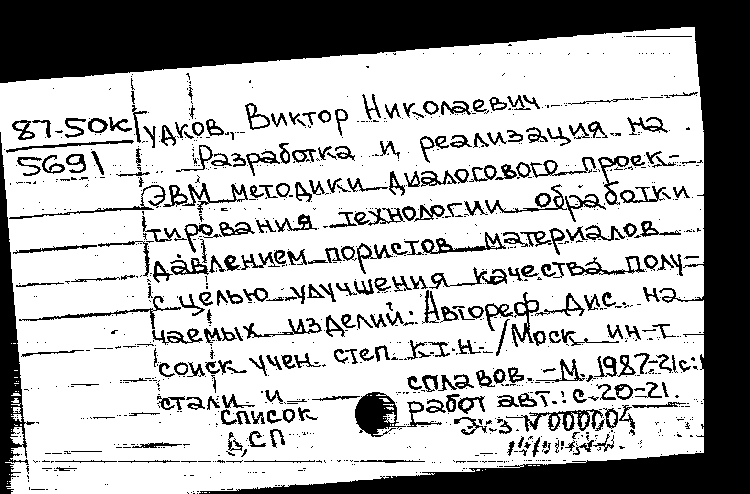 87-50к
5691
Гудков, Виктор Николаевич
Разработка и реализация на
ЭВМ методики диалогового проек-
тирования технологии обработки
давлением пористов материалов
с целью улучшения качества полу-
чаемых изделий. Автореф. дис. на
соиск учен. степ. к.т.н. / Моск. ин-т
стали и сплавов. - М., 1987-21с.:
список работ авт.: с. 20-21.
ДСП Экз N 000004